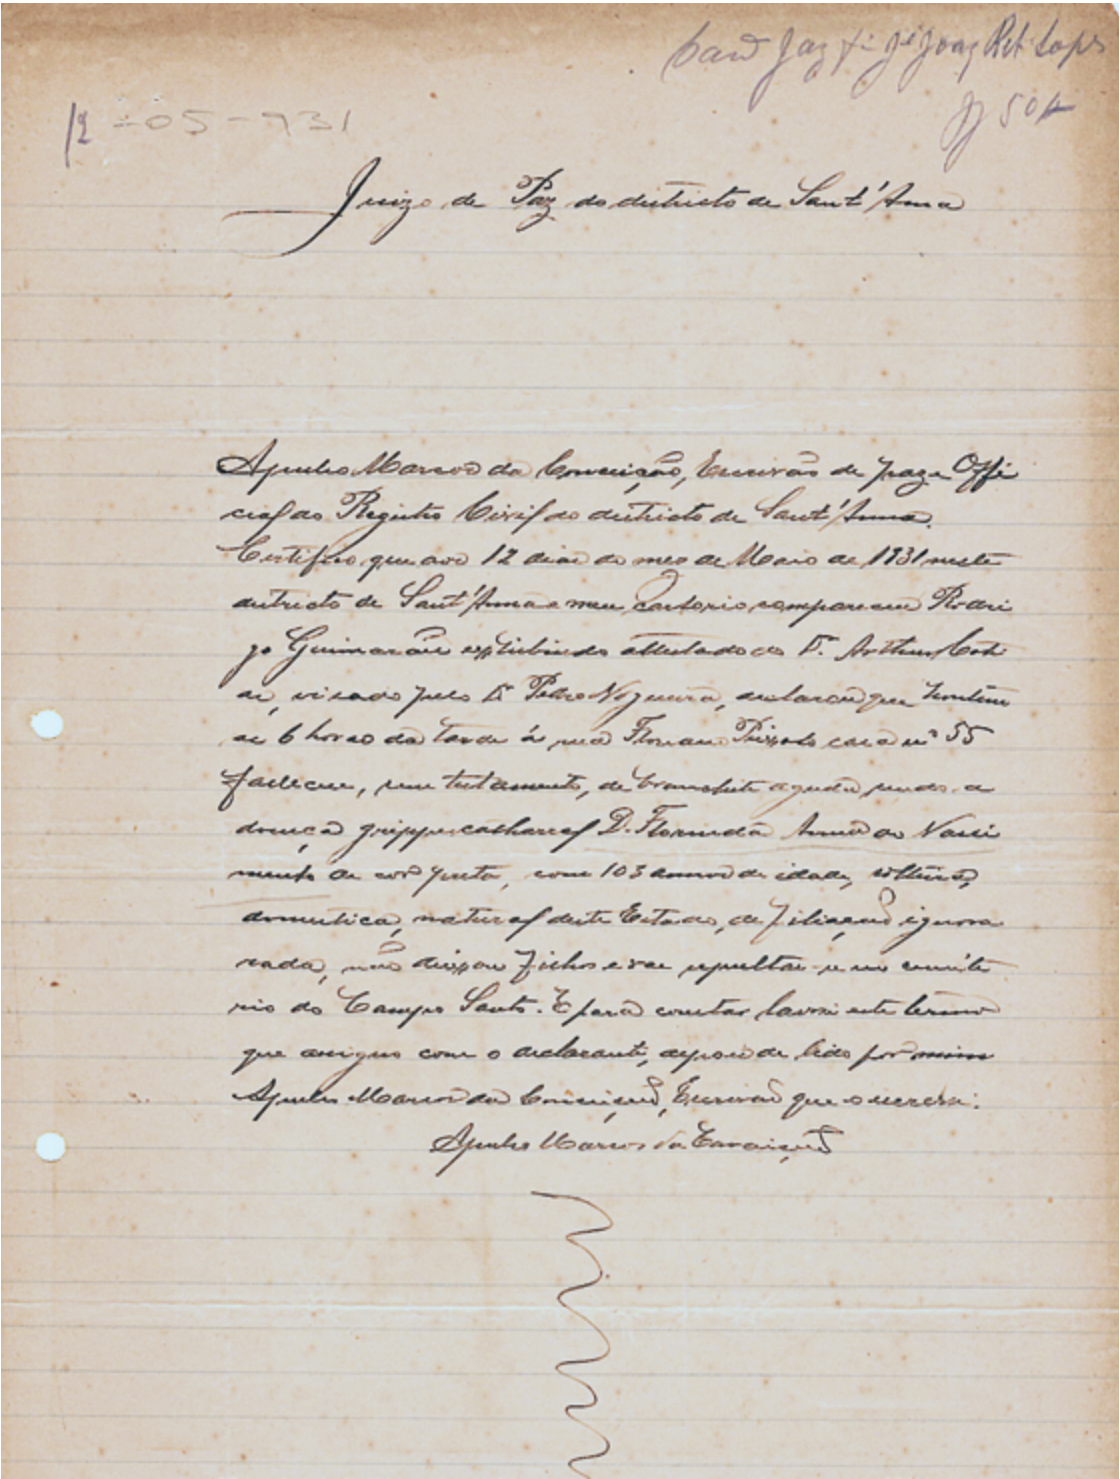 12-05-931
Juizo de Paz do districto de Sant'Anna
Apulio Marcos da Conceição, Escrivão de paz e Offi
cial do Registro Civil do districto de Sant'Anna.
Certifico que aos 12 dias do mes de Maio de 1931 neste
districto de Sant'Anna e meu cartorio compareceu Rodri
go Guimarães exhibindo attestado do Dr. Arthur
visado pelo Dr Pedro Nogueira, declarou que hontem
as 6 horas da tarde á rua Floriano Peixoto casa nº 55
falleceu, sem testamento, de bronchite aguda sendo a
doença grippe catharral D. Florinda Anna do Nasci
mento de cor preta, com 103 annos de idade, solteira,
domestica, natural deste Estado, de filiação ignora
rada, não deixou filhos e vae sepultar-se no cemite
rio do Campo Santo. E para constar lavrei este termo
que assigno com o declarante, depois de lido por mim
Apulio Marcos da Conceição, Escrivão que o escrevi.
Apulio Marcos da Conceição